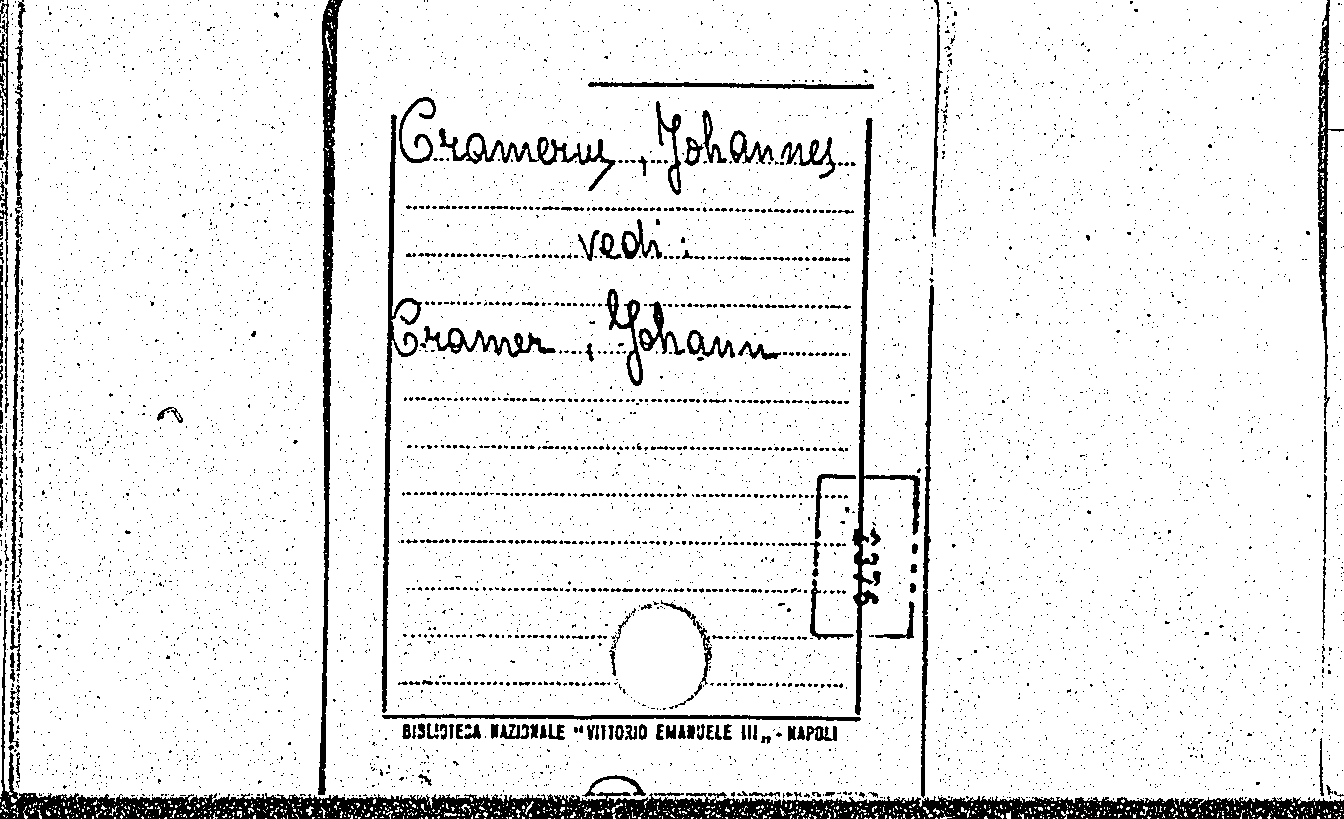 Cramerus, Johannes
vedi:
Cramer, Johann
2376
BIBLIOTECA NAZIONALE "VITTORIO EMANUELE III„ - NAPOLI